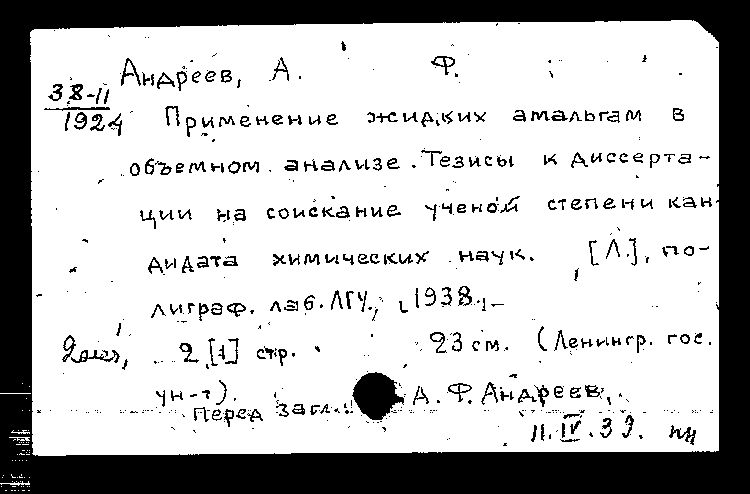 Андреев, А. Ф.
38-11
1924
Применение жидких амальгам в
объемном анализе. Тезисы к диссерта-
ции на соискание ученой степени кан-
дидата химических наук. [Л.], по-
лиграф. лаб. ЛГУ, 1938.
2 [1] стр. 23 см. (Ленингр. гос.
ун-т).
Перед загл.: А. Ф. Андреев.
11.IV.39.